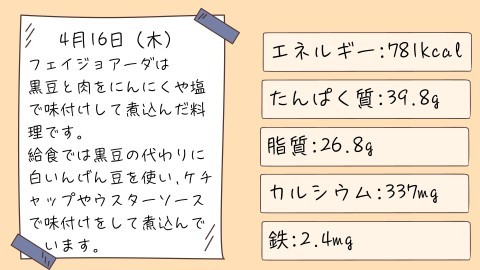 4月16日（木）
フェイジョアーダは
黒豆と肉をにんにくや塩
で味付けして煮込んだ料
理です。
給食では黒豆の代わりに
白いんげん豆を使い、ケチ
ャップやウスターソース
で味付けをして煮込んで
います。
エネルギー:781kcal
たんぱく質:39.8g
脂質:26.8g
カルシウム:337mg
鉄:2.4mg